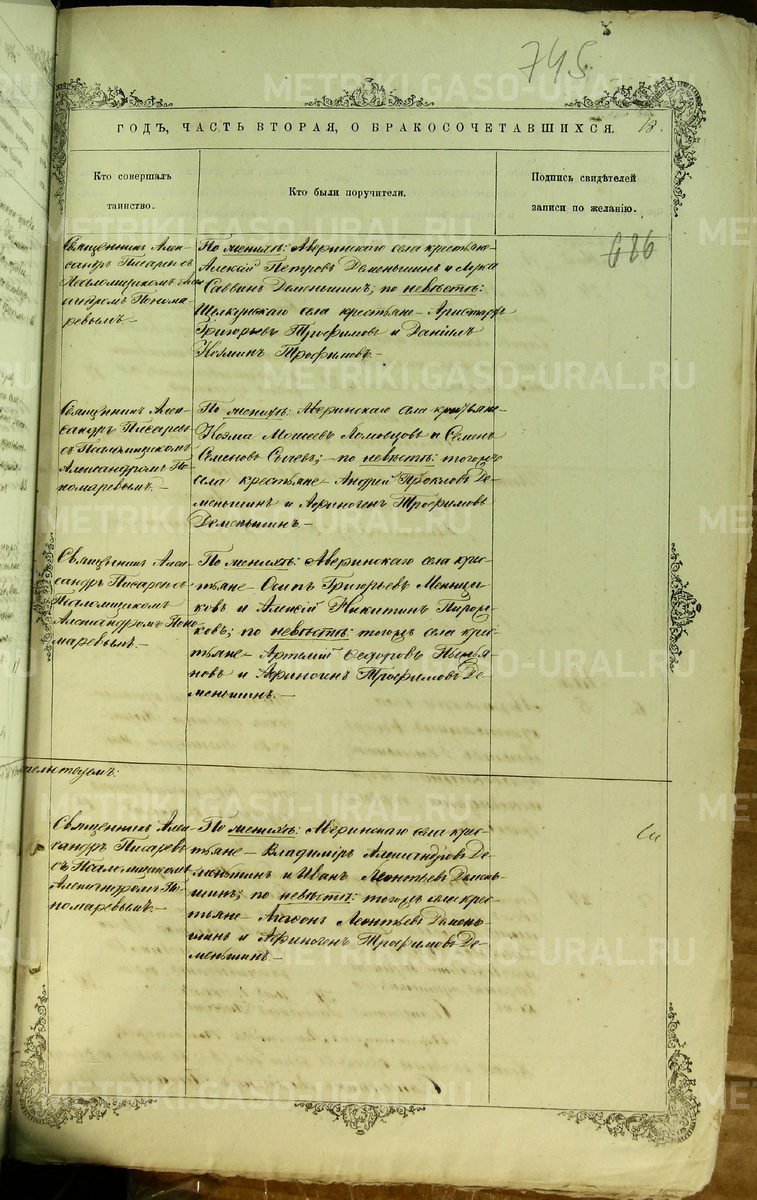 745.
ГОДЪ, ЧАСТЬ ВТОРАЯ, О БРАКОСОЧЕТАВШИХСЯ.
13.
Кто совершалъ
таинство.
Кто были поручители.
Подпись свидѣтелей
записи по желанію.
686
Священникъ Алек-
сандръ Писаревъ
Псаломщикомъ Алек-
сандромъ Понома-
ревымъ.—
По женихѣ: Аверинскаго села крестьяне
Алексѣй Петровъ Деменьшинъ и Лука
Саввинъ Деменьшинъ; по невѣстѣ:
Щелкунскаго села крестьяне— Аристархъ
Григорьевъ Трофимовъ и Даніилъ
Козминъ Трофимовъ.—
Священникъ Алек-
сандръ Писаревъ
съ Псаломщикомъ
Александромъ По-
номаревымъ.—
По женихѣ: Аверинскаго села крестьяне
Козма Моисеевъ Ломовцовъ и Семенъ
Семеновъ Сысевъ;— по невѣстѣ: тогожъ
села крестьяне— Андрей Прокловъ Де-
меньшинъ и Афиногенъ Трофимовъ
Деменьшинъ.—
Священникъ Алек-
сандръ Писаревъ
Псаломщикомъ
Александромъ Поно-
маревымъ.—
По женихѣ: Аверинскаго села крес-
тьяне— Осипъ Григорьевъ Меньщи-
ковъ и Алексѣй Никитинъ
ковъ; по невѣстѣ: тогожъ села крес-
тьяне— Артемій Ѳедоровъ
новъ и Афиногенъ Трофимовъ Де-
меньшинъ.—
тельствуемъ:
Священникъ Алек-
сандръ Писаревъ
съ Псаломщикомъ
Александромъ По-
номаревымъ.—
По женихѣ: Аверинскаго села крес-
тьяне— Владиміръ Александровъ Де-
меньшинъ и Иванъ Леонтьевъ Демень-
шинъ; по невѣстѣ: тогожъ села крес-
тьяне— Агафонъ Леонтьевъ Демень-
шинъ и Афиногенъ Трофимовъ Де-
меньшинъ.—
METRIKI.GASO-URAL.RU